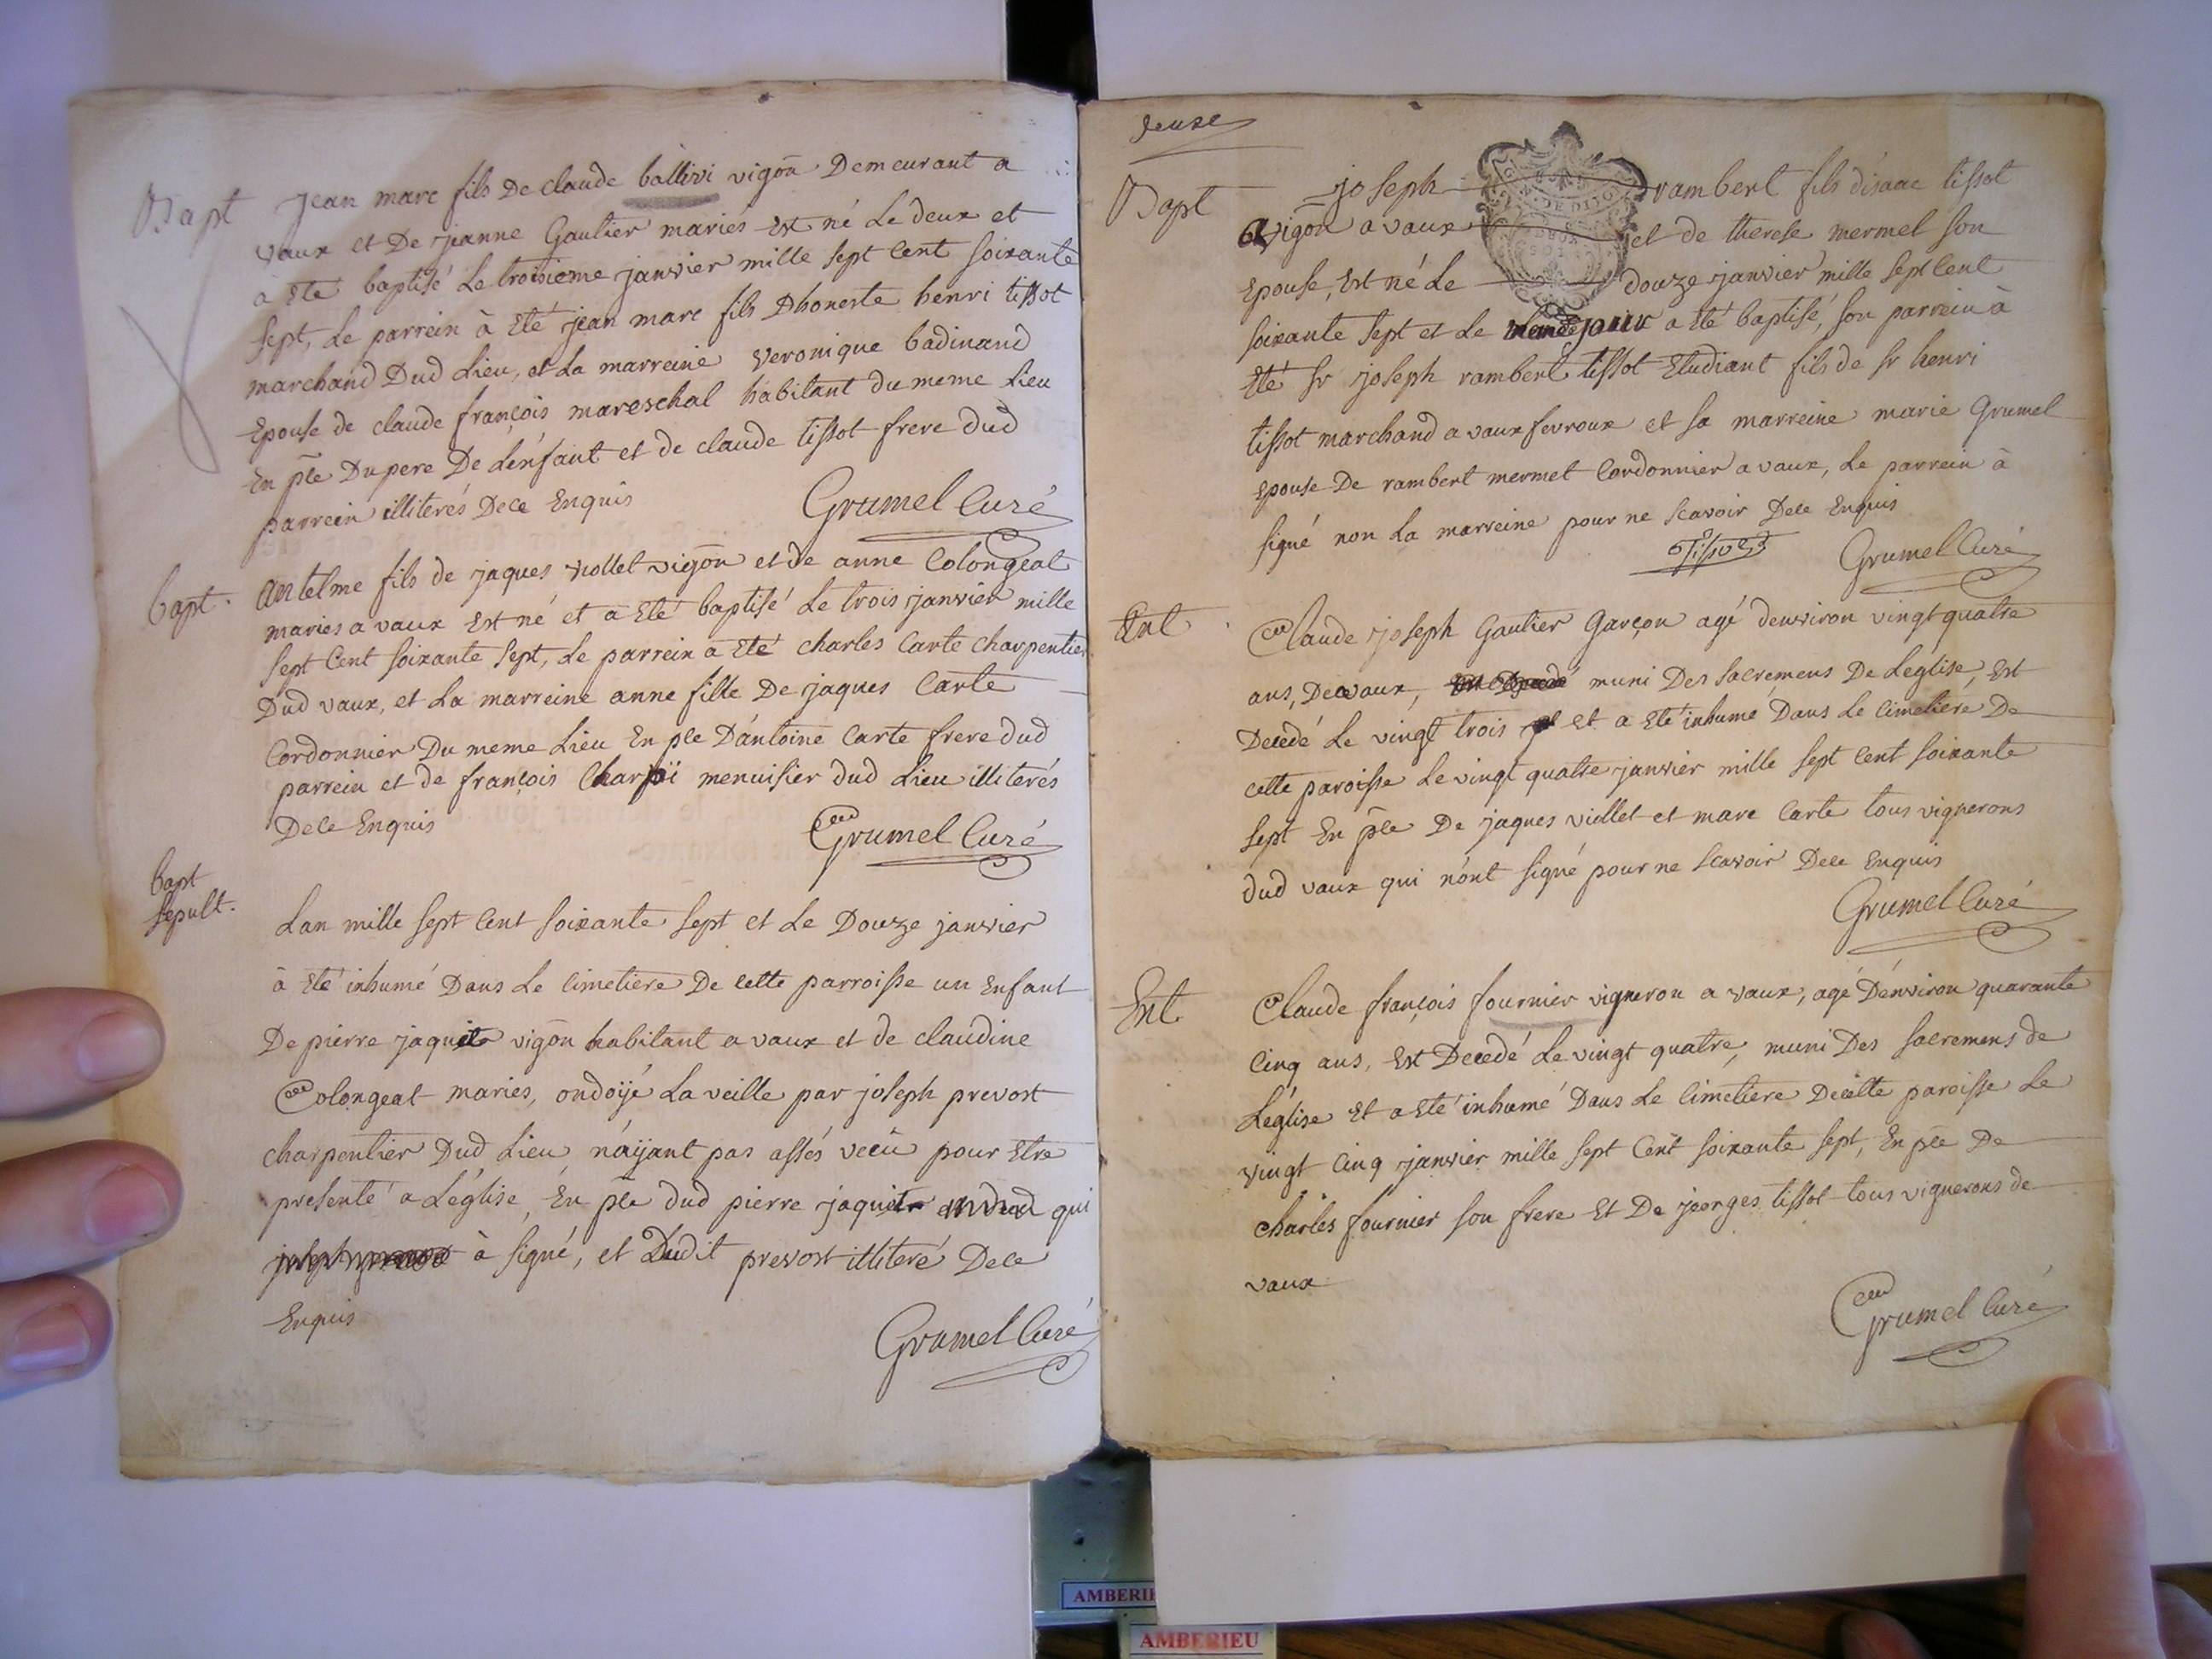 Bapt
jean marc fils De claude ballivi vigōn Demeurant a
vaux et De jeanne Gautier mariés Est né Le deux et
à Eté baptisé Le troisieme janvier mille sept Cent soixante
sept, Le parrein à Eté jean marc fils Dhoneste henri tissot
marchand Dud Lieu, et La marreine veronique badinand
Epouse de claude françois mareschal habitant du meme Lieu
En ple Du pere De L'enfant et de claude tissot frere dud
parrein illiterés Dece Enquis
Grumel Curé
bapt.
antelme fils de jaques viollet vigōn et de anne Colongeat
mariés a vaux Est né et a Eté baptisé Le trois janvier mille
sept Cent soixante sept, Le parrein a Eté charles Carte charpentier
Dud vaux, et La marreine anne fille De jaques Carte
Cordonnier Du meme Lieu En ple D'antoine Carte frere dud
parrein et de françois Charpi menuisier dud Lieu illiterés
Dece Enquis
Grumel Curé
bapt
sepult.
Lan mille sept Cent soixante sept et Le Douze janvier
à Eté inhumé Dans Le Cimetiere De cette parroisse un Enfant
De pierre jaquet vigōn habitant a vaux et de claudine
Colongeat mariés, ondoÿé La veille par joseph prevost
charpentier Dud Lieu n'aÿant pas assés vecu pour Etre
presenté a L'église, En ple dud pierre jaquet qui
à signé, et Dudit prevost illiteré Dece
Enquis
Grumel Curé
deuxe
Bapt
joseph rambert fils d'isaac tissot
vigōn a vaux et de therese mermet son
Epouse, Est né Le douze janvier mille sept Cent
soixante sept et Le jour a Eté baptisé, son parrein à
Eté sr joseph rambert tissot Etudiant fils de sr henri
tissot marchand a vaux fevroux et sa marreine marie Grumel
Epouse De rambert mermet Cordonnier a vaux, Le parrein à
signé non La marreine pour ne scavoir Dece Enquis
Tissot
Grumel Curé
Ent
Claude joseph Gautier Garçon agé denviron vingt quatre
ans, De vaux, muni Des sacremens De Leglise, Est
Decedé Le vingt trois et a Eté inhumé Dans Le Cimetiere De
cette paroisse Le vingt quatre janvier mille sept Cent soixante
sept En ple De jaques viollet et marc Carte tous vignerons
dud vaux qui n'ont signé pour ne scavoir Dece Enquis
Grumel Curé
Ent
Claude françois fournier vigneron a vaux, agé D'environ quarante
Cinq ans, Est Decedé Le vingt quatre, muni Des sacremens de
L'église Et a Eté inhumé Dans Le Cimetiere De cette paroisse Le
vingt Cinq janvier mille sept Cent soixante sept, En ple De
charles fournier son frere Et De jeorges tissot tous vignerons de
vaux
Grumel Curé
AMBERIE
AMBERIEU